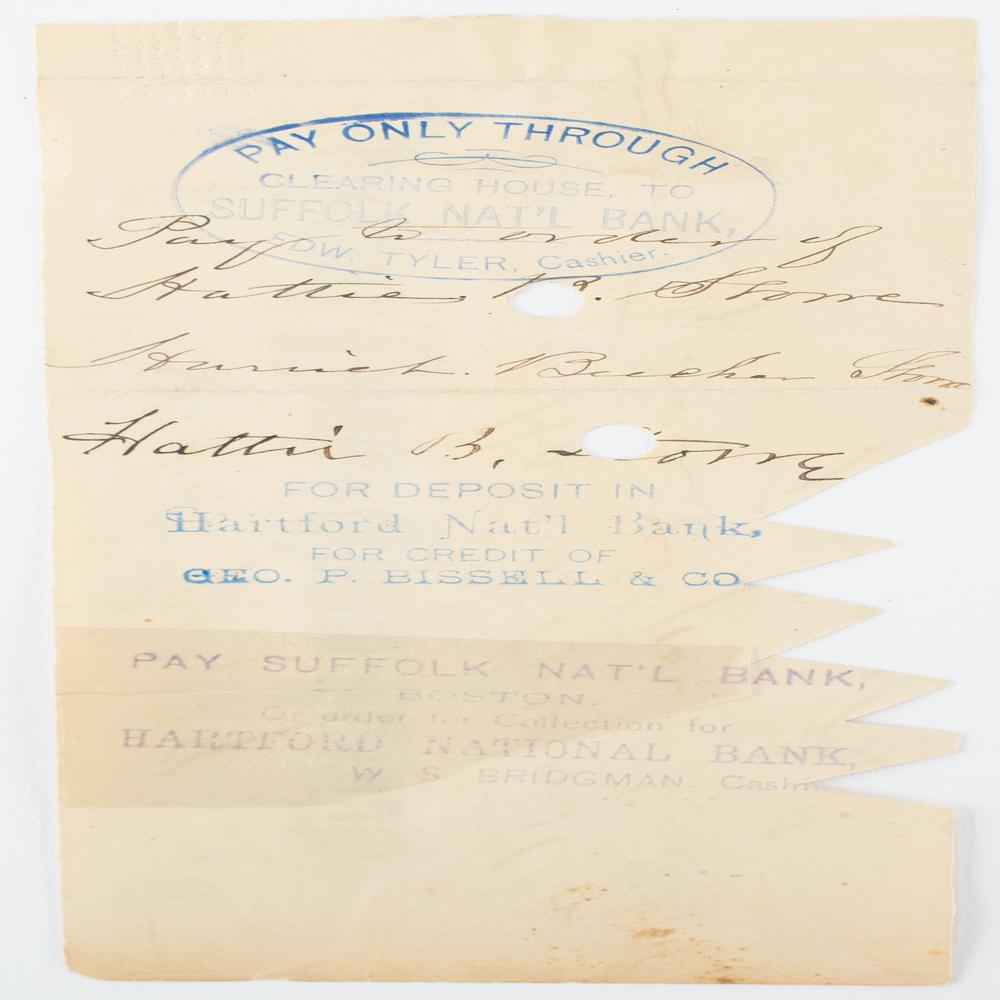 PAY ONLY THROUGH
CLEARING HOUSE, TO
SUFFOLK NAT'L BANK,
EDW. TYLER, Cashier.
Pay to order of
Hattie B. Stowe
Harriet Beecher Stowe
Hattie B. Stowe
FOR DEPOSIT IN
Hartford Nat'l Bank,
FOR CREDIT OF
GEO. P. BISSELL & CO.
PAY SUFFOLK NAT'L BANK,
BOSTON.
Or order for Collection for
HARTFORD NATIONAL BANK,
W S BRIDGMAN. Cashi